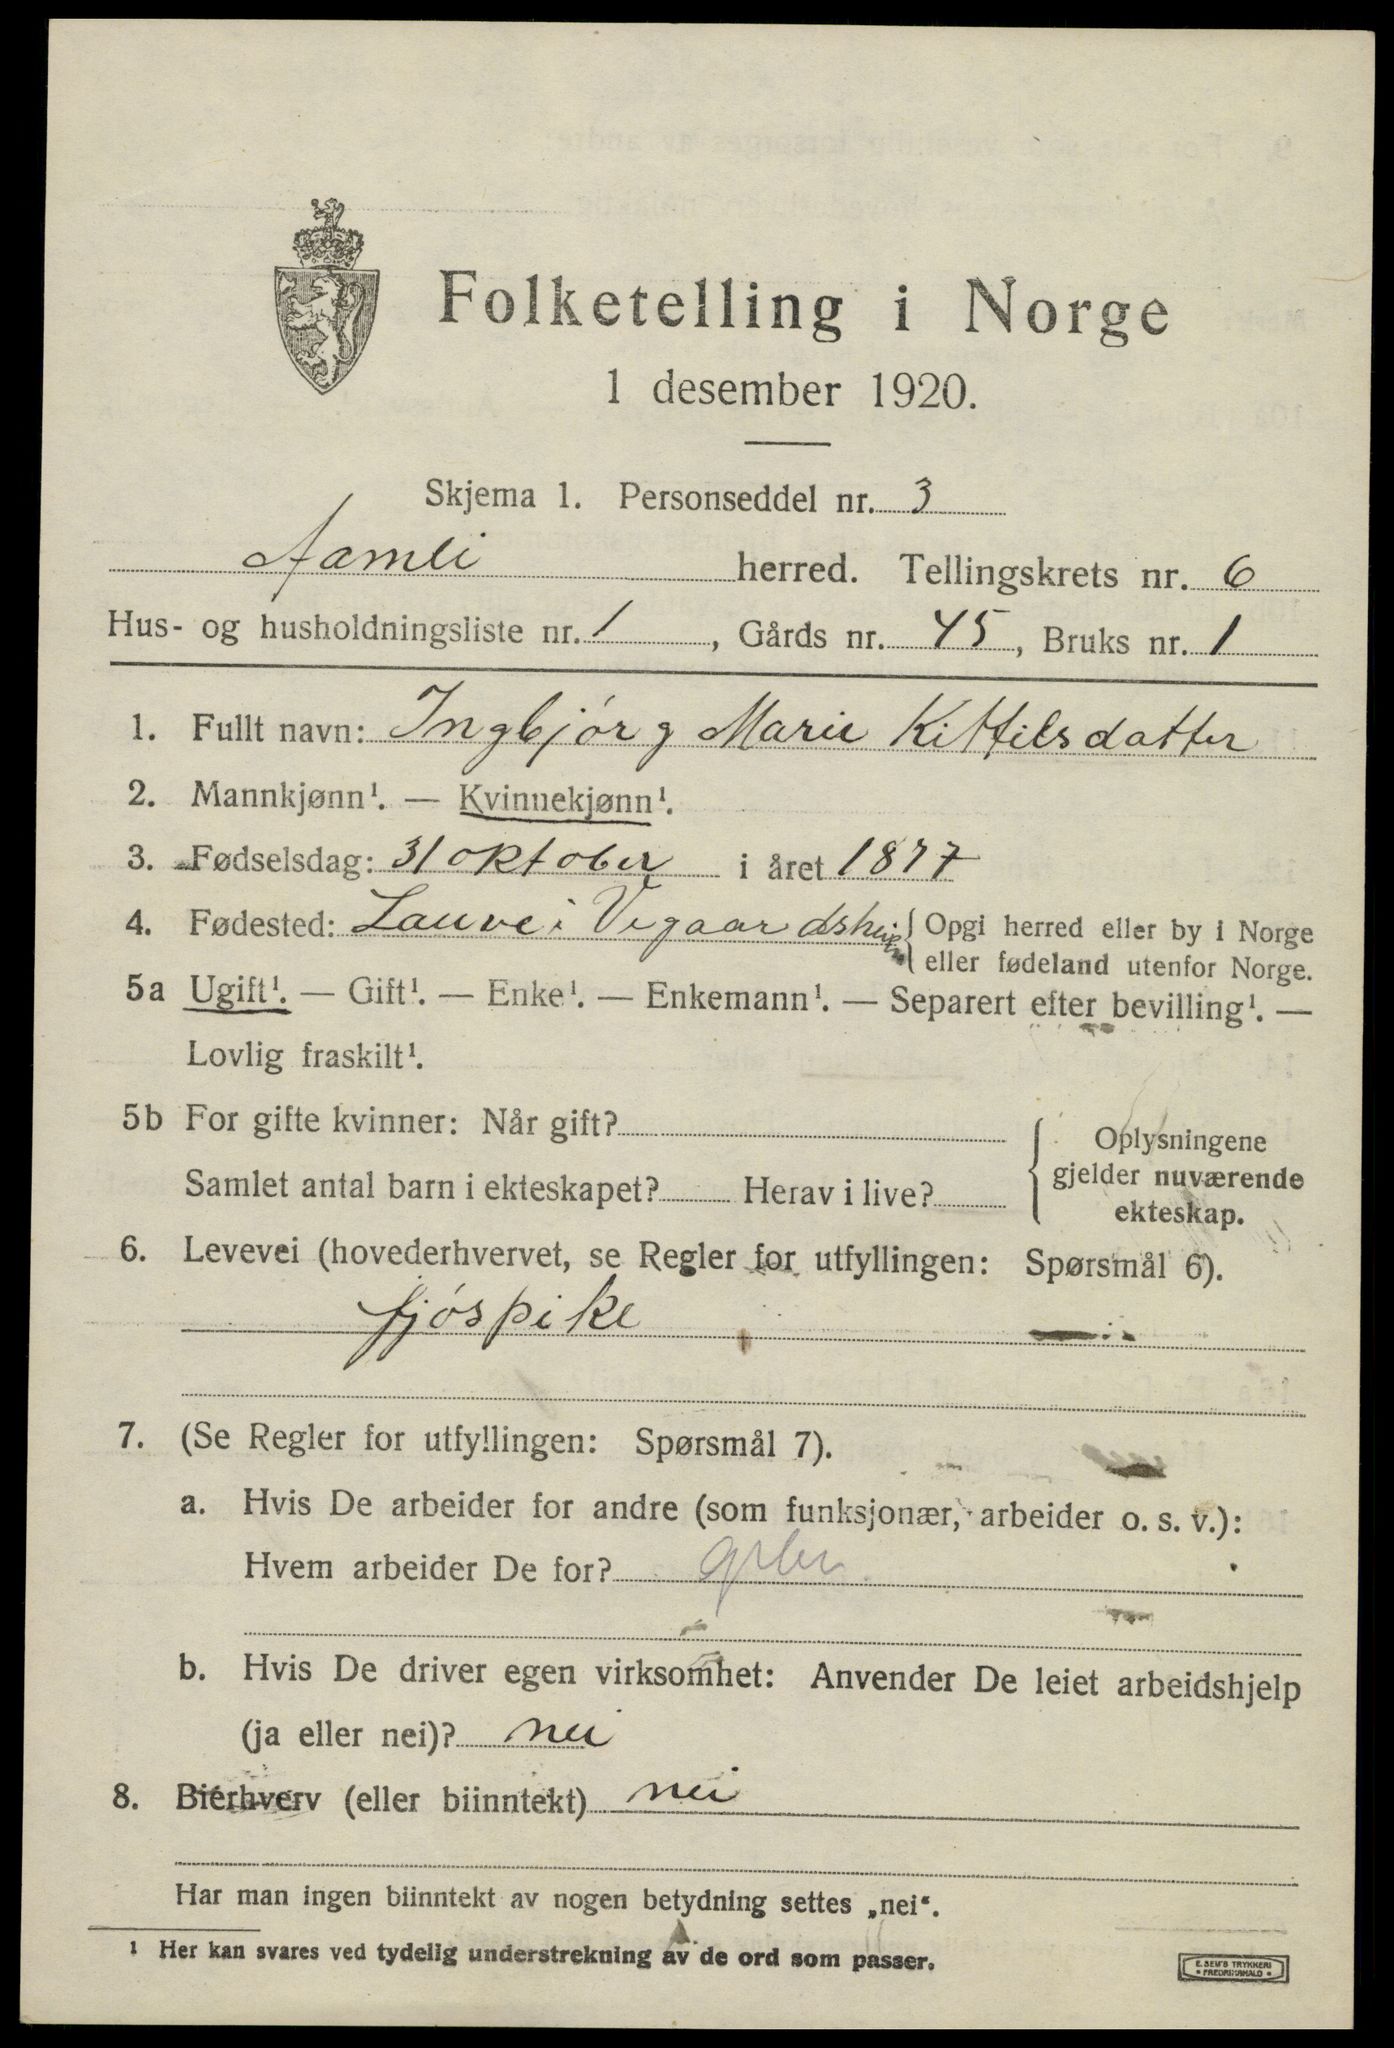 Folketelling i Norge
1 desember 1920.
Skjema 1. Personseddel nr. 3
Aamli herred. Tellingskrets nr. 6
Hus- og husholdningsliste nr. 1, Gårds nr. 45, Bruks nr. 1
1. Fullt navn: Ingbjørg Marie Kittilsdatter
2. Mannkjønn¹. — Kvinnekjønn¹.
3. Fødselsdag: 31 oktober i året 1877
4. Fødested: Lauve i Vegaardshei { Opgi herred eller by i Norge
eller fødeland utenfor Norge.
5a Ugift¹. — Gift¹. — Enke¹. — Enkemann¹. — Separert efter bevilling¹. —
Lovlig fraskilt¹.
5b For gifte kvinner: Når gift?
Samlet antal barn i ekteskapet? Herav i live?
Oplysningene
gjelder nuværende
ekteskap.
6. Levevei (hovederhvervet, se Regler for utfyllingen: Spørsmål 6).
fjøspike
7. (Se Regler for utfyllingen: Spørsmål 7).
a. Hvis De arbeider for andre (som funksjonær, arbeider o. s. v.):
Hvem arbeider De for?
b. Hvis De driver egen virksomhet: Anvender De leiet arbeidshjelp
(ja eller nei)? nei
8. Bierhverv (eller biinntekt) nei
Har man ingen biinntekt av nogen betydning settes „nei“.
¹ Her kan svares ved tydelig understrekning av de ord som passer.
E. SEM'S TRYKKERI
• FREDRIKSHALD •